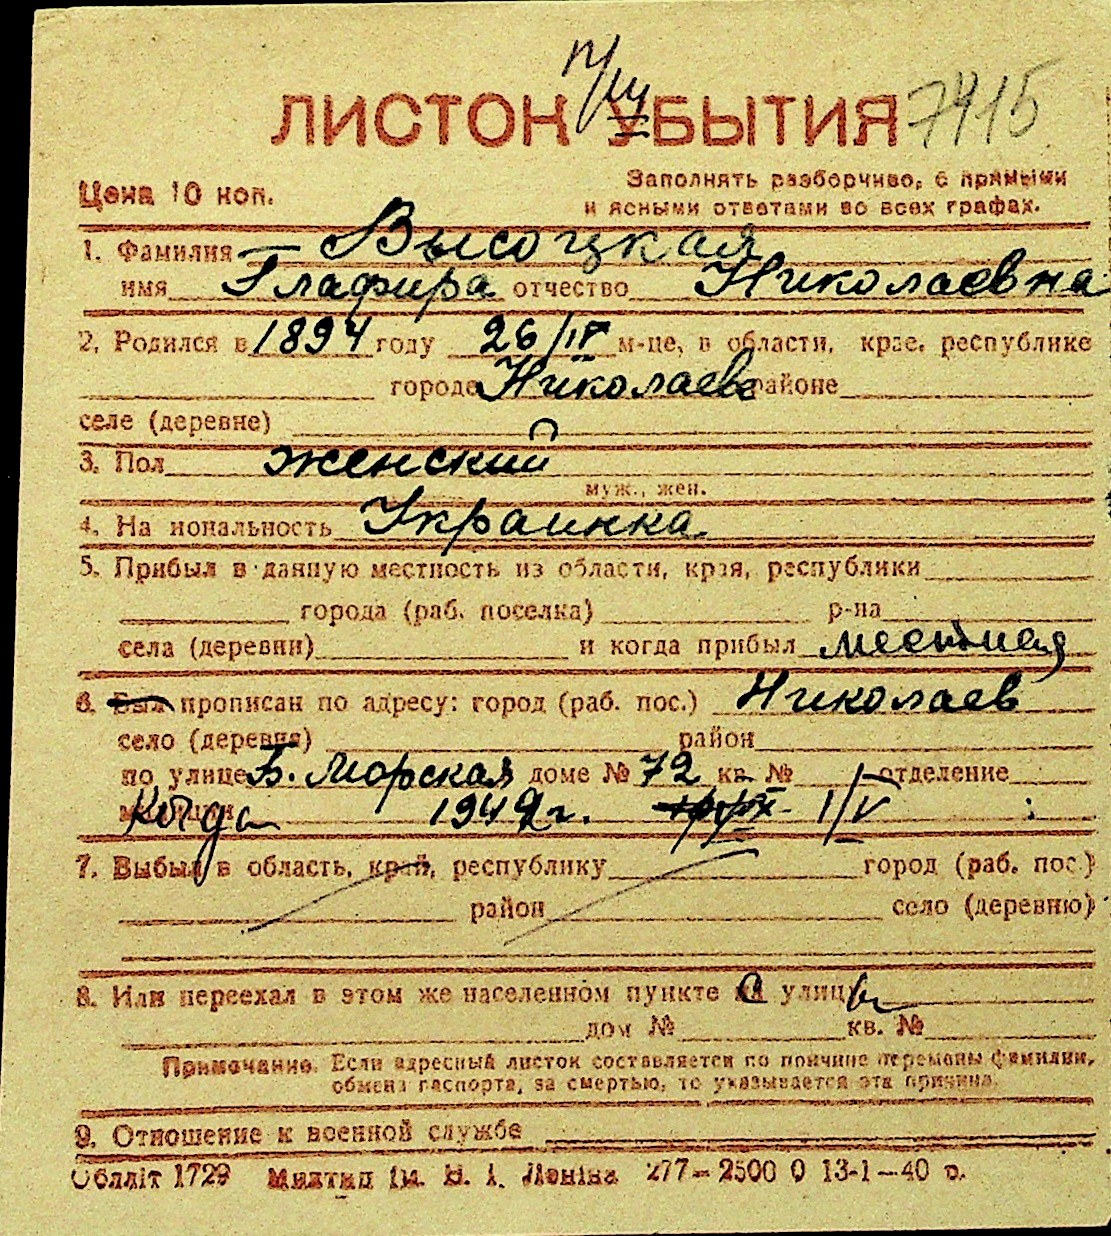 ЛИСТОН УБЫТИЯ 7415
Цена 10 коп.
Заполнять разборчиво, с прямыми
и ясными ответами во всех графах.
1. Фамилия Высоцкая
имя Глафира отчество Николаевна
2. Родился в 1894 году 26/IV м-це, в области, крае, республике
городе Николаеве районе
селе (деревне)
3. Пол женский
муж., жен.
4. На иональность Украинка
5. Прибыл в данную местность из области, края, республики
города (раб. поселка) р-на
села (деревни) и когда прибыл местная
6. Был прописан по адресу: город (раб. пос.) Николаев
село (деревня) район
по улице Б. Морская доме № 72 кв. № отделение
Когда 1942 г. 1/V
7. Выбыл в область, край, республику город (раб. пос.)
район село (деревню)
8. Или переехал в этом же населенном пункте с улицы
дом № кв. №
Примечание. Если адресный листок составляется по причине перемены фамилии,
обмена паспорта, за смертью, то указывается эта причина.
9. Отношение к военной службе
Обліт 1729 им. В. І. Леніна 277—2500 0 13-1—40 р.